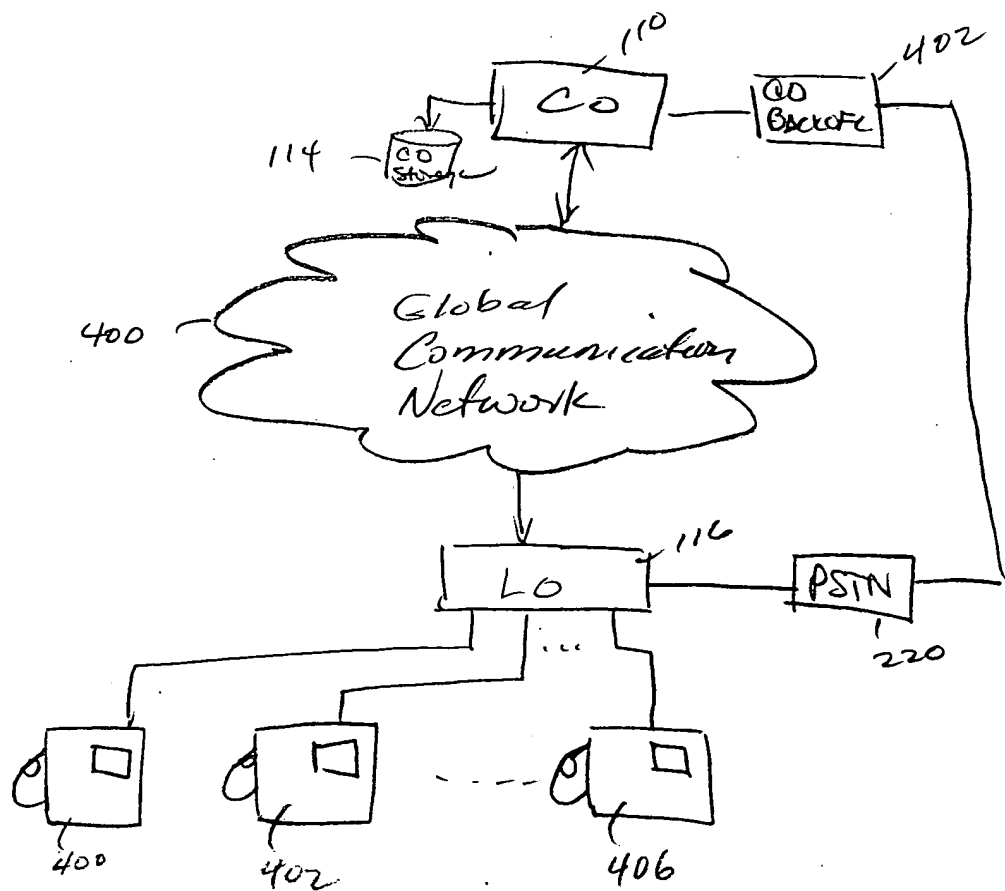 110
402
CO
CO
BACKOFC
114
CO
Storage
400
Global
Communication
Network
116
LO
PSTN
220
...
400
402
406